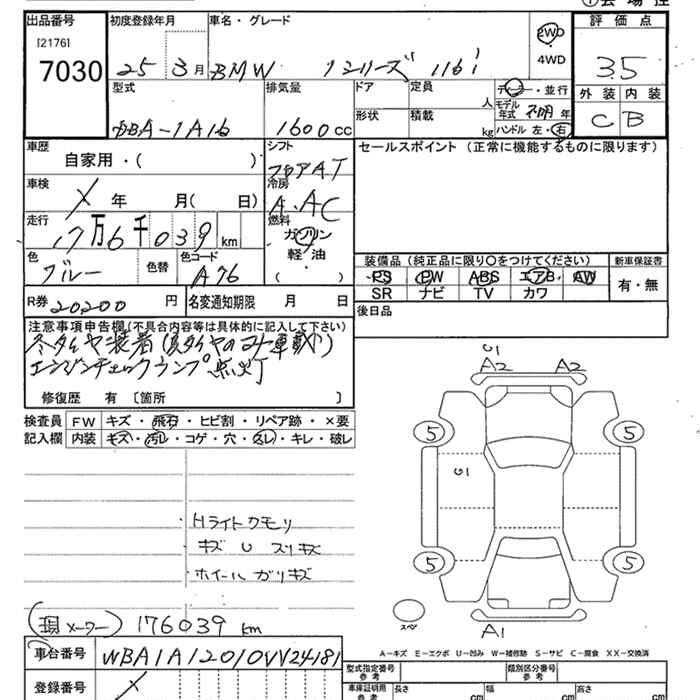 出品番号
[2176]
7030
初度登録年月
25 3月
車名・グレード
BMW 1シリーズ 116i
2WD
・
4WD
評価点
3.5
外装 内装
C B
型式
DBA-1A16
排気量
1600cc
ドア
形状
定員
人
積載
kg
ディーラー・並行
モデル年式 不明 年
ハンドル 左・右
車歴
自家用・( )
シフト
フロアAT
車検
X 年 月( 日)
冷房
A.AC
走行
17万6千039km
燃料
ガソリン
軽・油
( )
色
ブルー
色替
色コード
A76
R券 20200 円
名変通知期限 月 日
セールスポイント (正常に機能するものに限ります)
装備品(純正品に限り○をつけてください)
PS PW ABS エアB AW
SR ナビ TV カワ
新車保証書
有・無
後日品
注意事項申告欄(不具合内容等は具体的に記入して下さい)
冬タイヤ装着(夏タイヤのコト車載)
エンジンチェックランプ 点灯
修復歴 有〔箇所 〕
検査員記入欄
FW キズ・飛石・ヒビ割・リペア跡・×要
内装 キズ・汚レ・コゲ・穴・スレ・キレ・破レ
Hライトクモリ
キズ U スリキズ
ホイールガリキズ
(現メーター) 176039 km
車台番号 WBA1A12010VV24181
登録番号 X
G1
A2 A2
5 5
G1
5 5
スペア
A1
A-キズ E-エクボ U-凹み W-補修跡 S-サビ C-腐食 XX-交換済
型式指定番号
参考
類別区分番号
参考
車庫証明用
参考
長さ cm
幅 cm
高さ cm